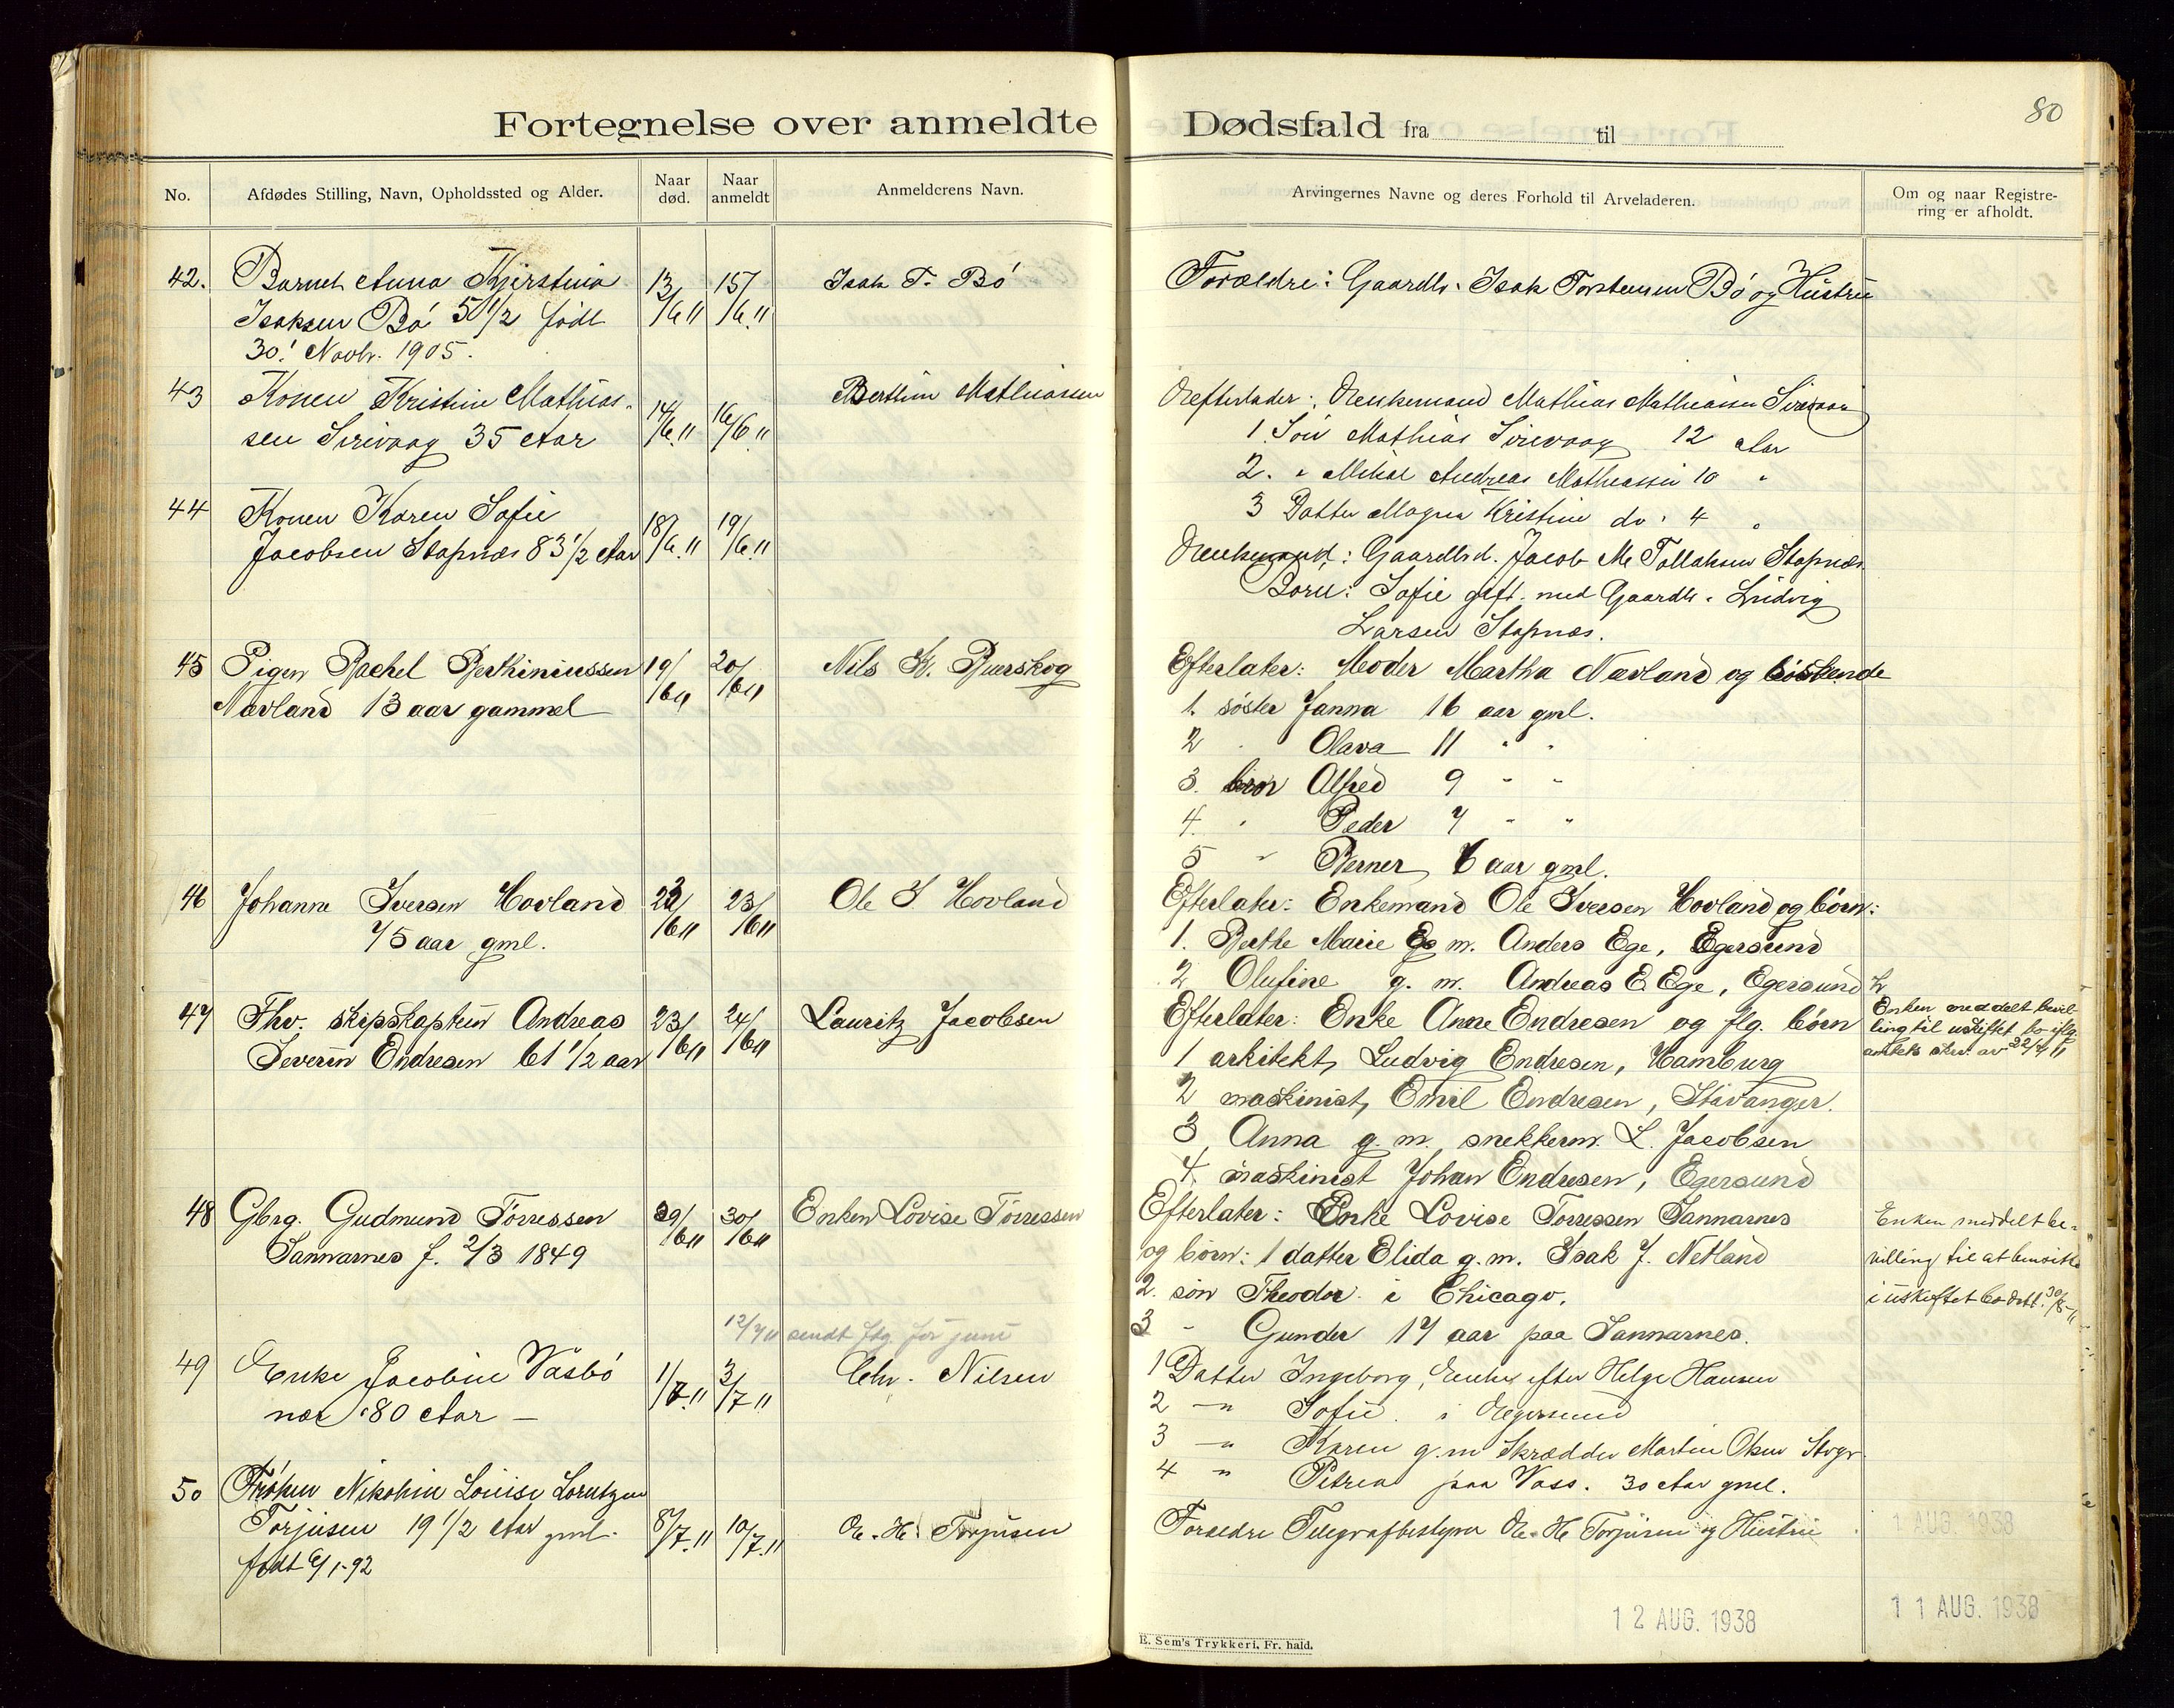 Fortegnelse over anmeldte Dødsfald fra til
80
No.
Afdødes Stilling, Navn, Opholdssted og Alder.
Naar død.
Naar anmeldt
Anmelderens Navn.
Arvingernes Navne og deres Forhold til Arveladeren.
Om og naar Registre-
ring er afholdt.
42. Barnet Anna Kjerstina 13/6 11 15/6 11 Isak T. Bö
Isaksen Bö 5 1/2 födt
30! Novbr. 1905.
Forældre: Gaardbr. Isak Torstensen Bö og Hustru
43 Konen Kristine Mathias- 14/6 11 16/6 11 Berthin Mathiasen
sen Sirevaag 35 Aar
Efterlader: Enkemand Mathias Mathiassen Sirevaag
1. Sön Mathias Sirevaag 12 Aar
2. " Mikal Andreas Mathiassen 10 "
3 Datter Magna Kristine do. 4 "
44 Konen Karen Sofie 18/6 11 19/6 11
Jacobsen Stapnæs 83 1/2 Aar
Enkemand: Gaardbr. Jacob M Tollaksen Stapnæs
Börn: Sofie gift. med Gaardbr. Ludvig
Larsen Stapnæs.
45 Pigen Rachel Berthiniussen 19/6 11 20/6 11 Nils K. Bjerskog
Nævland 13 aar gammel
Efterlater: Moder Martha Nævland og söskende
1. söster Janna 16 aar gml.
2 " Olava 11 " "
3. bror Alfred 9 " "
4. " Peder 7 " "
5 " Berner 6 aar gml.
46 Johanne Iversen Hovland 22/6 11 23/6 11 Ole I Hovland
75 aar gml.
Efterlater: Enkemand Ole Iversen Hovland og börn:
1. Berthe Marie g. m. Anders Ege, Egersund
2 Olufine g. m. Andreas E. Ege, Egersund
47 Fhv. skipskaptein Andreas 23/6 11 24/6 11 Lauritz Jacobsen
Severin Endresen 61 1/2 aar
Efterlater: Enke Anne Endresen og flg. börn
1 arkitekt, Ludvig Endresen, Hamburg
2 maskinist, Emil Endresen, Stavanger.
3, Anna g. m. snekkerm. L. Jacobsen
4, maskinist Johan Endresen, Egersund
Enken meddelt bevil-
ling til uskiftet bo ifg.
amtets skr. av 22/7 11
48 Gbrg. Gudmund Törressen 29/6 11 30/6 11 Enken Lovise Törressen
Sannarnes f. 2/3 1849
Efterlater: Enke Lovise Törressen Sannarnes
og börn: 1 datter Elida g. m. Isak J. Netland
2. sön Theodor i Chicago.
3 " Gunder 17 aar paa Sannarnes.
Enken meddelt be-
villing til at hensitte
i uskiftet bo dat. 30/8-11
12/7 11 sendt ftg. for juni
49 Enke Jacobine Vasbö 1/7 11 3/7 11 Chr. Nilsen
nær 80 Aar —
1 Datter Ingeborg, Enke efter Helge Hansen
2 — " Sofie. i Egersund
3 — " Karen g. m Skrædder Martin Olsen Stvgr
4 " Petrea paa Voss. 30 Aar gml.
50 Fröken Nikoline Louise Lorntzen
Torjusen 19 1/2 Aar gml. 8/7 11 10/7 11 O. H. Torjusen
födt 6/1-92
Forældre Telegrafbestyrer O. H Torjusen og Hustru
1 AUG. 1938
1 2 AUG. 1938
1 1 AUG. 1938
E. Sem's Trykkeri, Fr. hald.